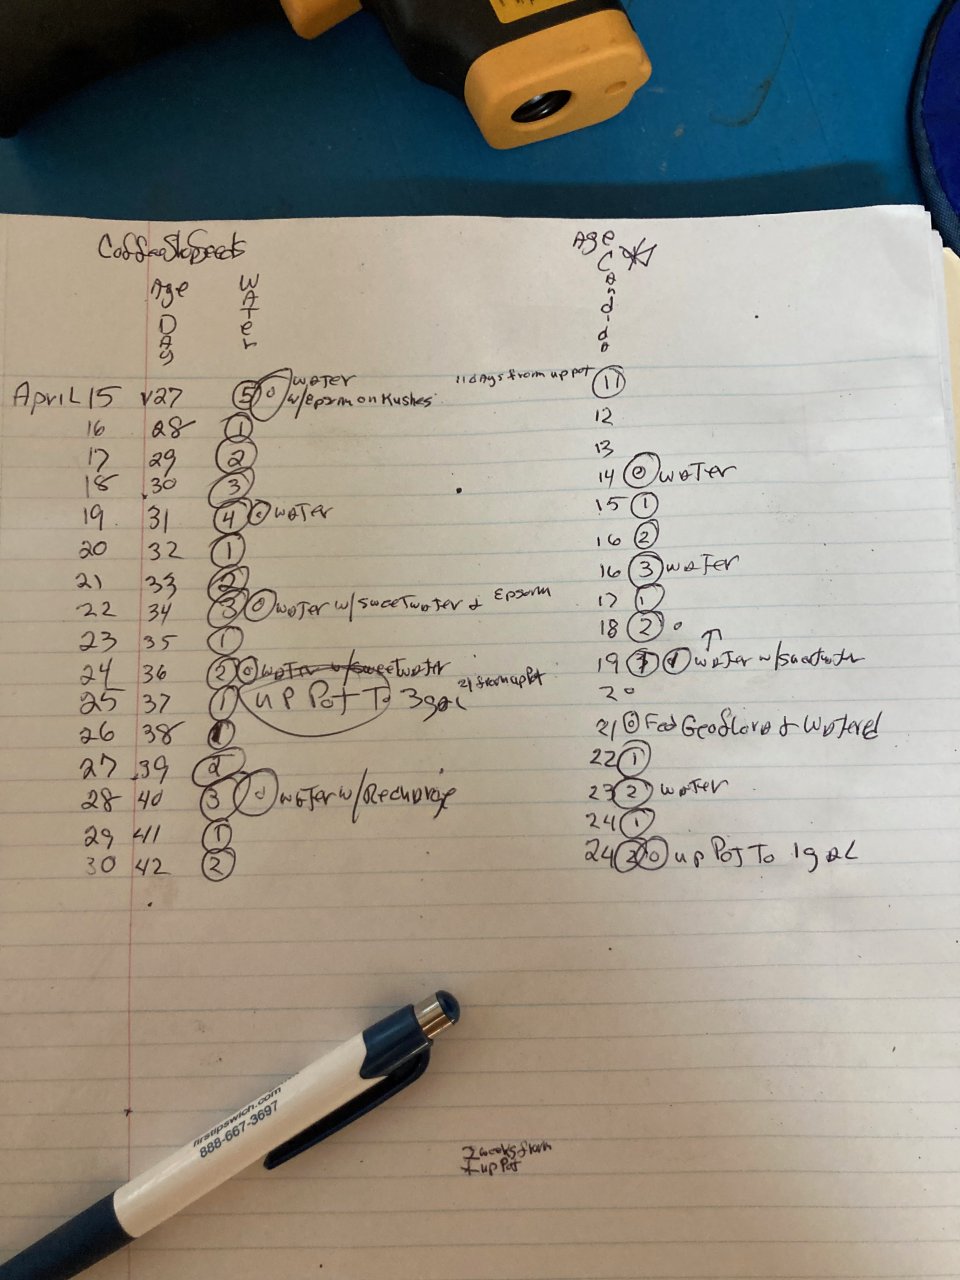 Age
Age Water
Day
Candida
April 15 27 5 0 water w/epsom on Kushes 11 days from up pot 11
16 28 1 12
17 29 2 13
18 30 3 14 0 water
19 31 4 0 water 15 1
20 32 1 16 2
21 33 2 16 3 water
22 34 3 0 water w/sweetwater & Epsom 17 1
23 35 1 18 2 0
24 36 2 0 water w/sweetwater 19 3 water w/sweetwater
25 37 1 up Pot To 3gal 21 from up Pot 20
26 38 1 21 0 Fed Geoflora & Watered
27 39 2 22 1
28 40 3 0 water w/Recharge 23 2 water
29 41 1 24 1
30 42 2 24 2 0 up Pot To 1gal
firstipswich.com
888-667-3697
weeks from
up Pot